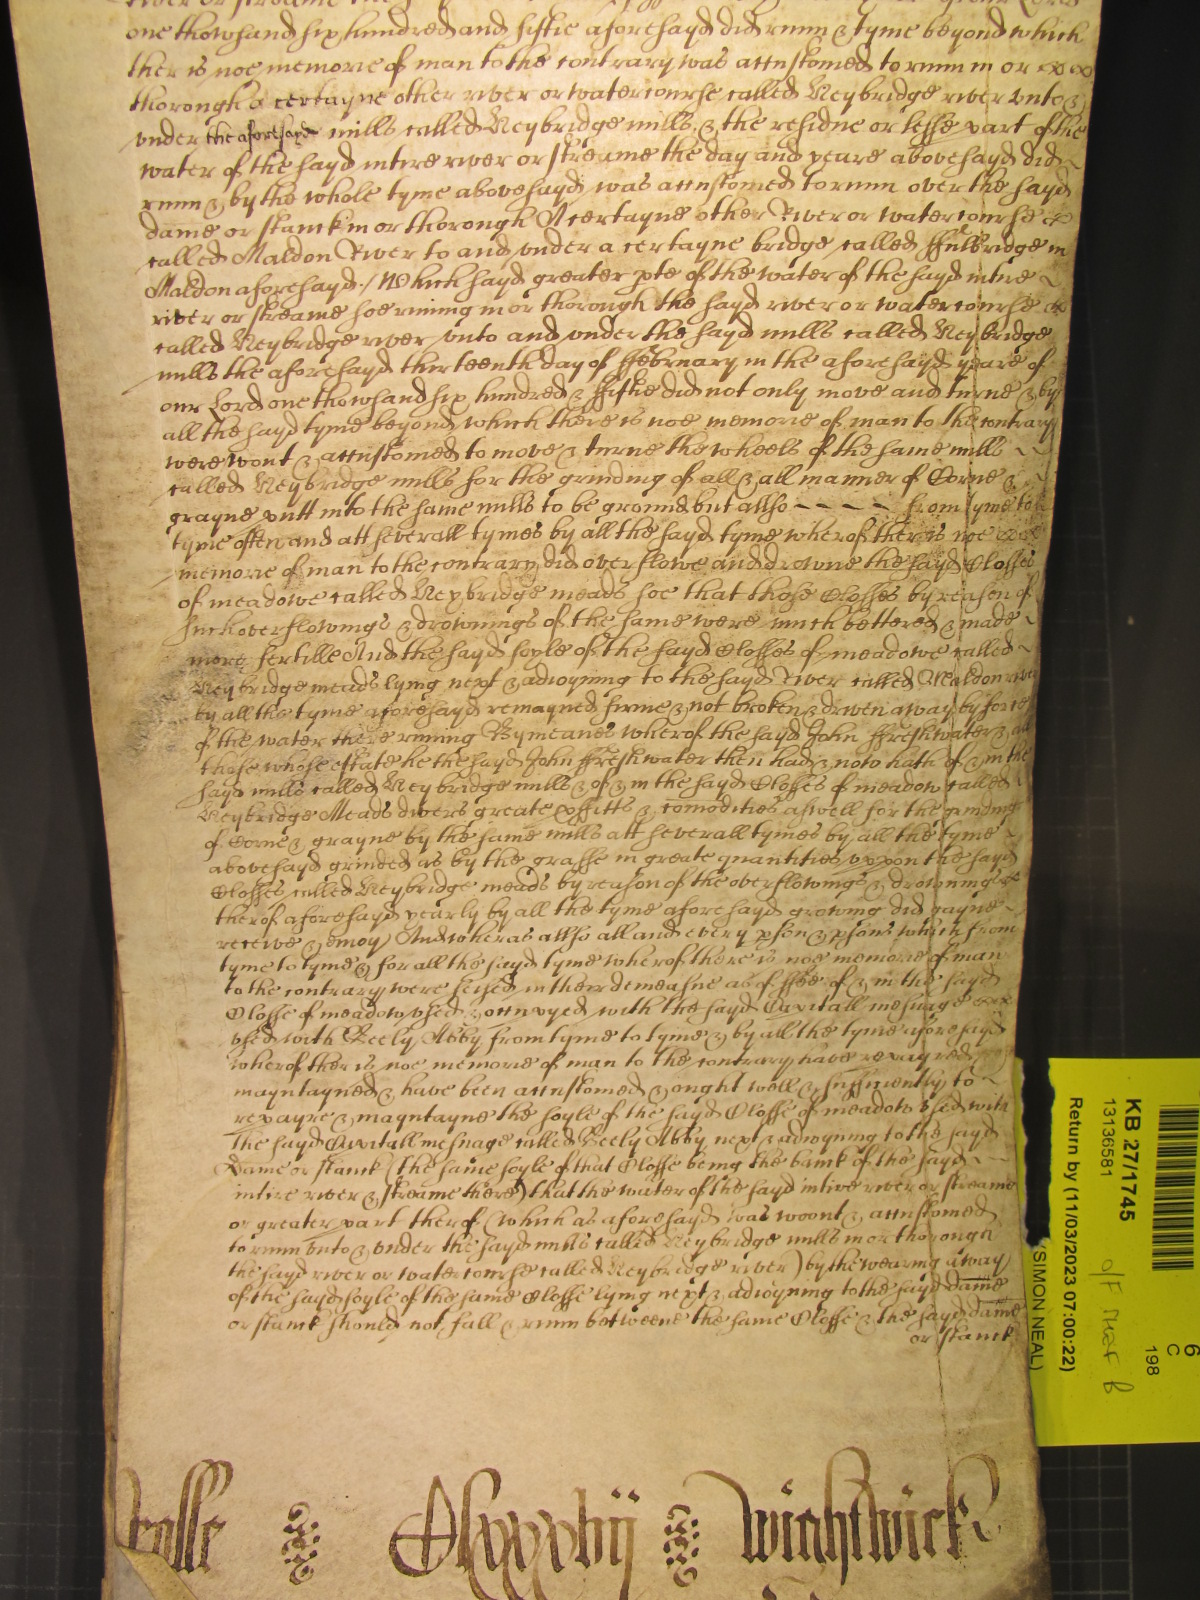 one thowsand six hundred and fiftie aforesayd did runn & tyme beyond which
ther is noe memorie of man to the contrary was accustomed to runn in or
thorough a certayne other river or watercourse called Heybridge river unto &
under the aforesayd mills called Heybridge mills & the residue or lesse part of the
water of the sayd intire river or streame the day and yeare abovesayd did
runn & by the whole tyme abovesayd was accustomed to runn over the sayd
dame or stanck in or thorough A certayne other River or watercourse
called Maldon River to and under a certayne bridge called ffullbridge in
Maldon aforesayd / Which sayd greater pte of the water of the sayd intire
river or streame soe runing in or thorough the sayd river or watercourse
called Heybridge river unto and under the sayd mills called Heybridge
mills the aforesayd thirteenth day of ffebruary in the aforesayd yeare of
our Lord one thowsand six hundred & ffiftie did not only move and turne & by
all the sayd tyme beyond which there is noe memorie of man to the contrary
were wont & accustomed to move & turne the wheels of the same mills
called Heybridge mills for the grinding of all & all manner of Corne &
grayne putt into the same mills to be ground but allso - - - - from tyme to
tyme often and att severall tymes by all the sayd tyme wherof ther is noe
memorie of man to the contrary did overflowe and drowne the sayd Closses
of meadowe called Heybridge meads soe that those Closses by reason of
such overflowings & drownings of the same were much bettered & made
more fertille And the sayd soyle of the sayd Closses of meadowe called
Heybridge meads lying next & adioyning to the sayd River called Maldon river
by all the tyme aforesayd remayned firme & not broken & driven away by force
of the water there runing By meanes wherof the sayd John ffreshwater & all
those whose estate he the sayd John ffreshwater then had & now hath of & in the
sayd mills called Heybridge mills & of & in the sayd Closses of meadow called
Heybridge Meads divers greate pffitts & comodities aswell for the grinding
of Corne & grayne by the same mills att severall tymes by all the tyme
abovesayd grinded as by the grasse in greate quantities uppon the sayd
Closses called Heybridge meads by reason of the overflowings & drownings
therof aforesayd yearly by all the tyme aforesayd growing did gayne
receive & enioy And wheras allso all and every pson & psons which from
tyme to tyme & for all the sayd tyme wherof there is noe memorie of man
to the contrary were seised in their demeasne as of ffee of & in the sayd
Closse of meadow used & occupyed with the sayd Capitall mesuage
used with Beely Abby from tyme to tyme & by all the tyme aforesayd
wherof ther is noe memorie of man to the contrary have repayred
mayntayned & have been accustomed & ought well & sufficiently to
repayre & mayntayne the soyle of the sayd Closse of meadow used with
the sayd Capitall mesuage called Beely Abby next & adioyning to the sayd
Dame or stanck (the same soyle of that Closse being the banck of the sayd - -
intire river & streame there) that the water of the sayd intire river or streame
or greater part therof (which as aforesayd was woont & accustomed
to runn unto & under the sayd mills called Heybridge mills in or thorough
the sayd river or watercourse called Heybridge river) by the wearing away
of the sayd soyle of the same Closse lying next & adioyning to the sayd dame
or stanck should not fall & runn betweene the same Closse & the sayd dame
or stanck
Wightwick
KB 27/1745
13136581
Return by (11/03/2023 07:00:22)
(SIMON NEAL)
6
C
198